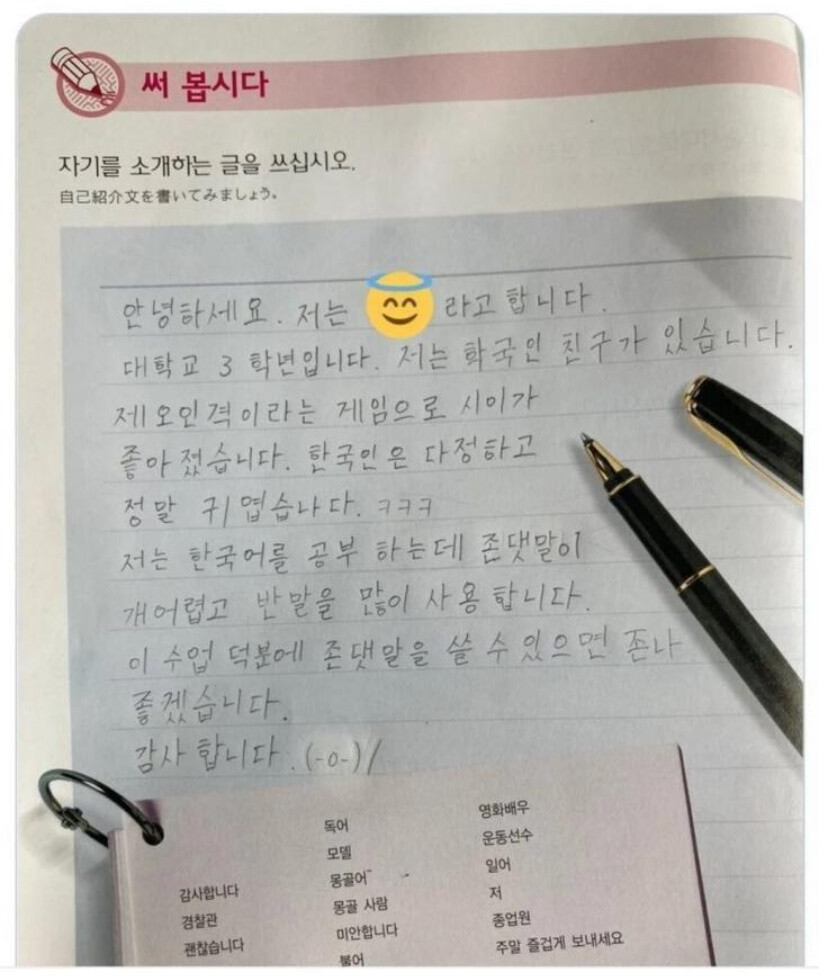 써 봅시다
자기를 소개하는 글을 쓰십시오.
自己紹介文を書いてみましょう。
안녕하세요. 저는 라고 합니다.
대학교 3 학년입니다. 저는 학국인 친구가 있습니다.
제오인격이라는 게임으로 시이가
좋아졌습니다. 한국인은 다정하고
정말 귀엽습나다. ㅋㅋㅋ
저는 한국어를 공부 하는데 존댓말이
개어렵고 반말을 많이 사용합니다.
이 수업 덕분에 존댓말을 쓸 수 있으면 존나
좋겠습니다.
감사합니다. (-o-)/
감사합니다
경찰관
괜찮습니다
독어
모델
몽골어
몽골 사람
미안합니다
불어
영화배우
운동선수
일어
저
종업원
주말 즐겁게 보내세요